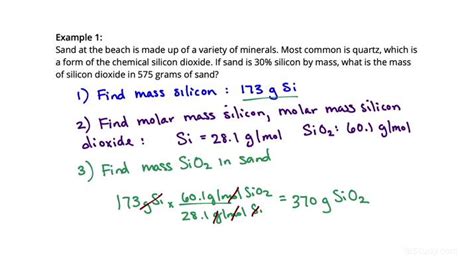 Example 1:
Sand at the beach is made up of a variety of minerals. Most common is quartz, which is
a form of the chemical silicon dioxide. If sand is 30% silicon by mass, what is the mass
of silicon dioxide in 575 grams of sand?
1) Find mass silicon : 173 g Si
2) Find molar mass silicon, molar mass silicon
dioxide : Si = 28.1 g/mol SiO₂: 60.1 g/mol
3) Find mass SiO₂ in sand
173 g Si × 60.1 g/mol SiO₂ / 28.1 g/mol Si = 370 g SiO₂